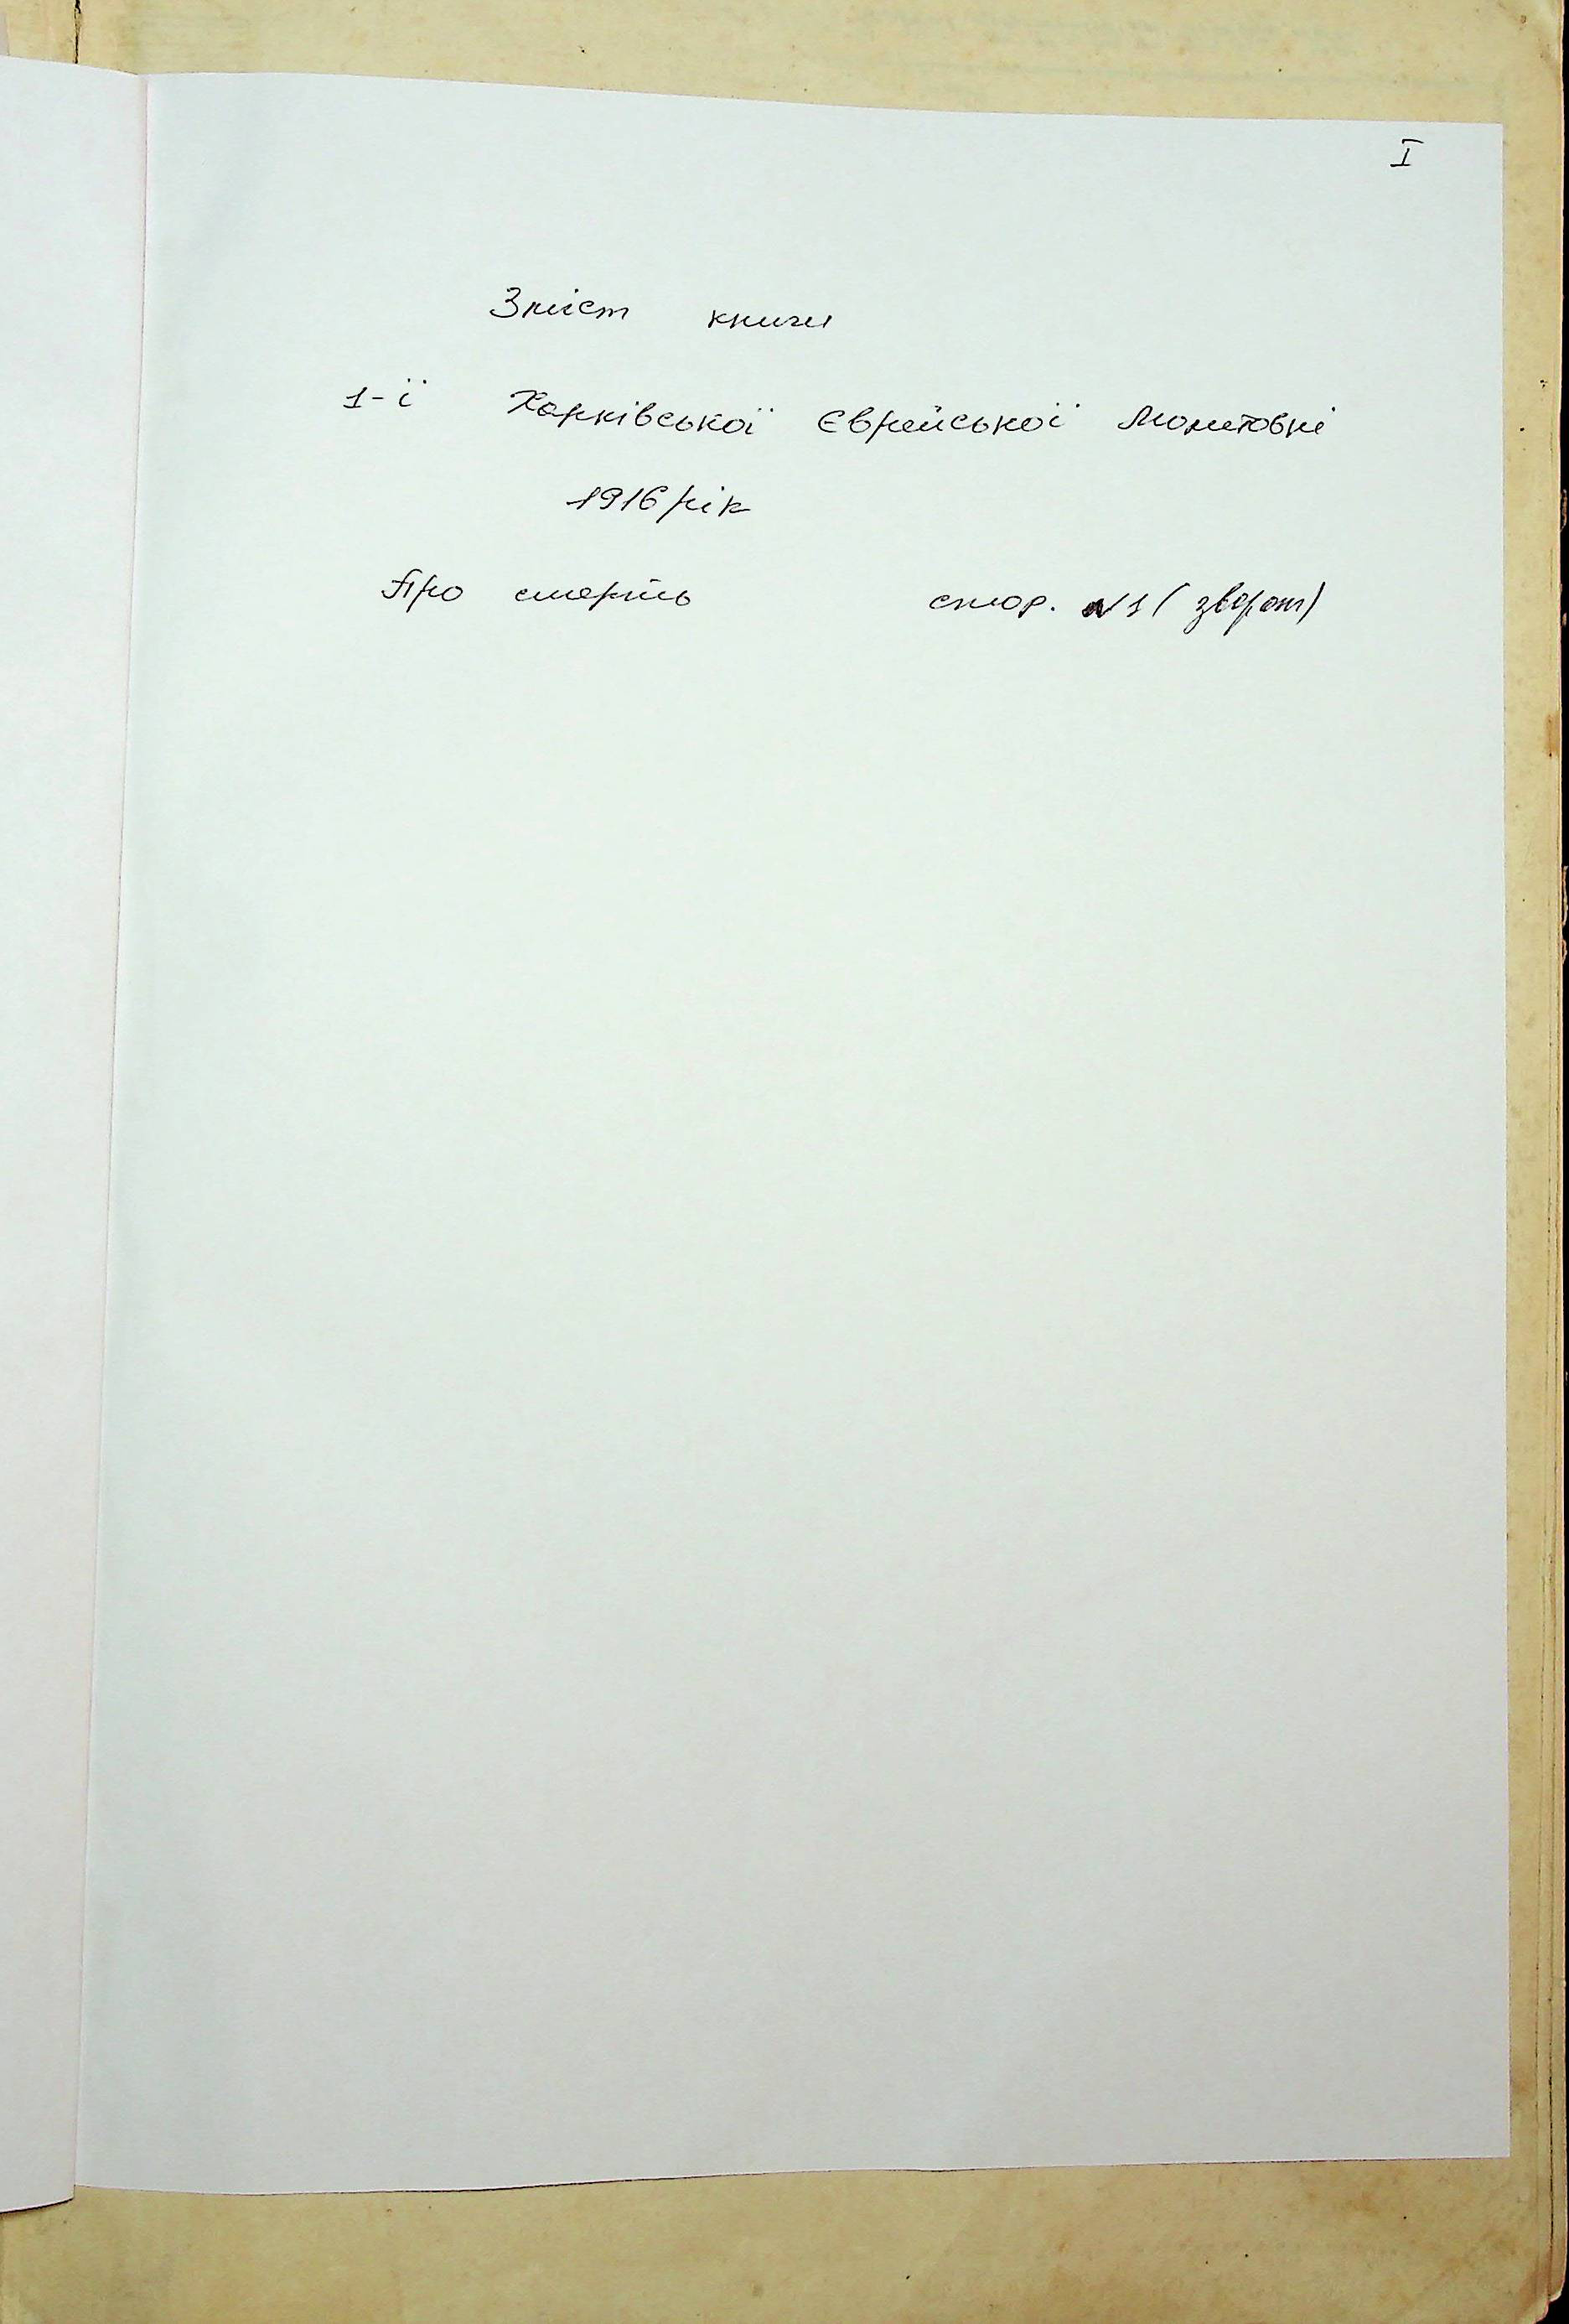 I
Зміст книги
1-ї Харківської Єврейської Молитовні
1916 рік
Про смерть стор. №1 (зворот)